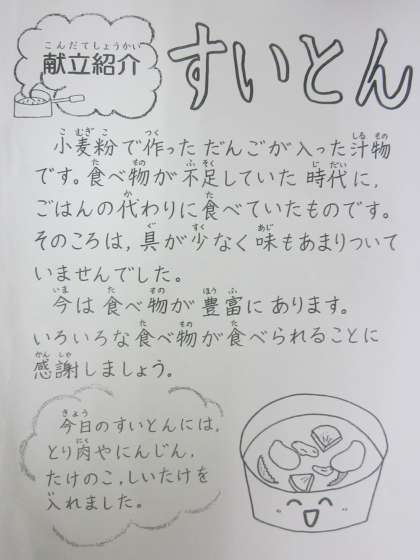 こんだてしょうかい
献立紹介
すいとん
小麦粉で作っただんごが入った汁物
です。食べ物が不足していた時代に、
ごはんの代わりに食べていたものです。
そのころは、具が少なく味もあまりついて
いませんでした。
今は食べ物が豊富にあります。
いろいろな食べ物が食べられることに
感謝しましょう。
今日のすいとんには、
とり肉やにんじん、
たけのこ、しいたけを
入れました。